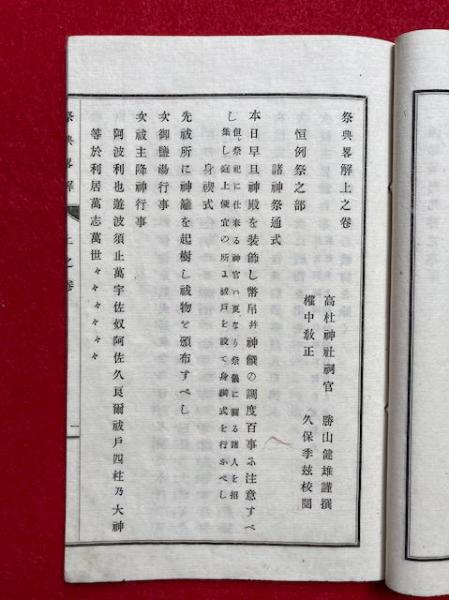 祭典畧解上之卷
高杜神社祠官 勝山健雄謹撰
權中敎正 久保季玆校閲
恒例祭之部
諸神祭通式
本日早旦神殿を装飾し幣帛幷神饌の調度百事ふ注意すべ
し但、祭祀に仕来る神官ハ更なり祭儀に關る諸人を招
集し庭上便宜の所ょ祓戸を設て身禊式を行かべし
身禊式
先祓所に神籬を起樹し祓物を頒布すべし
次御鹽湯行事
次祓主降神行事
阿波利也遊波須止萬宇佐奴阿佐久良爾祓戸四柱乃大神
等於利居萬志萬世々々々々々々
祭典畧解 上之卷 一